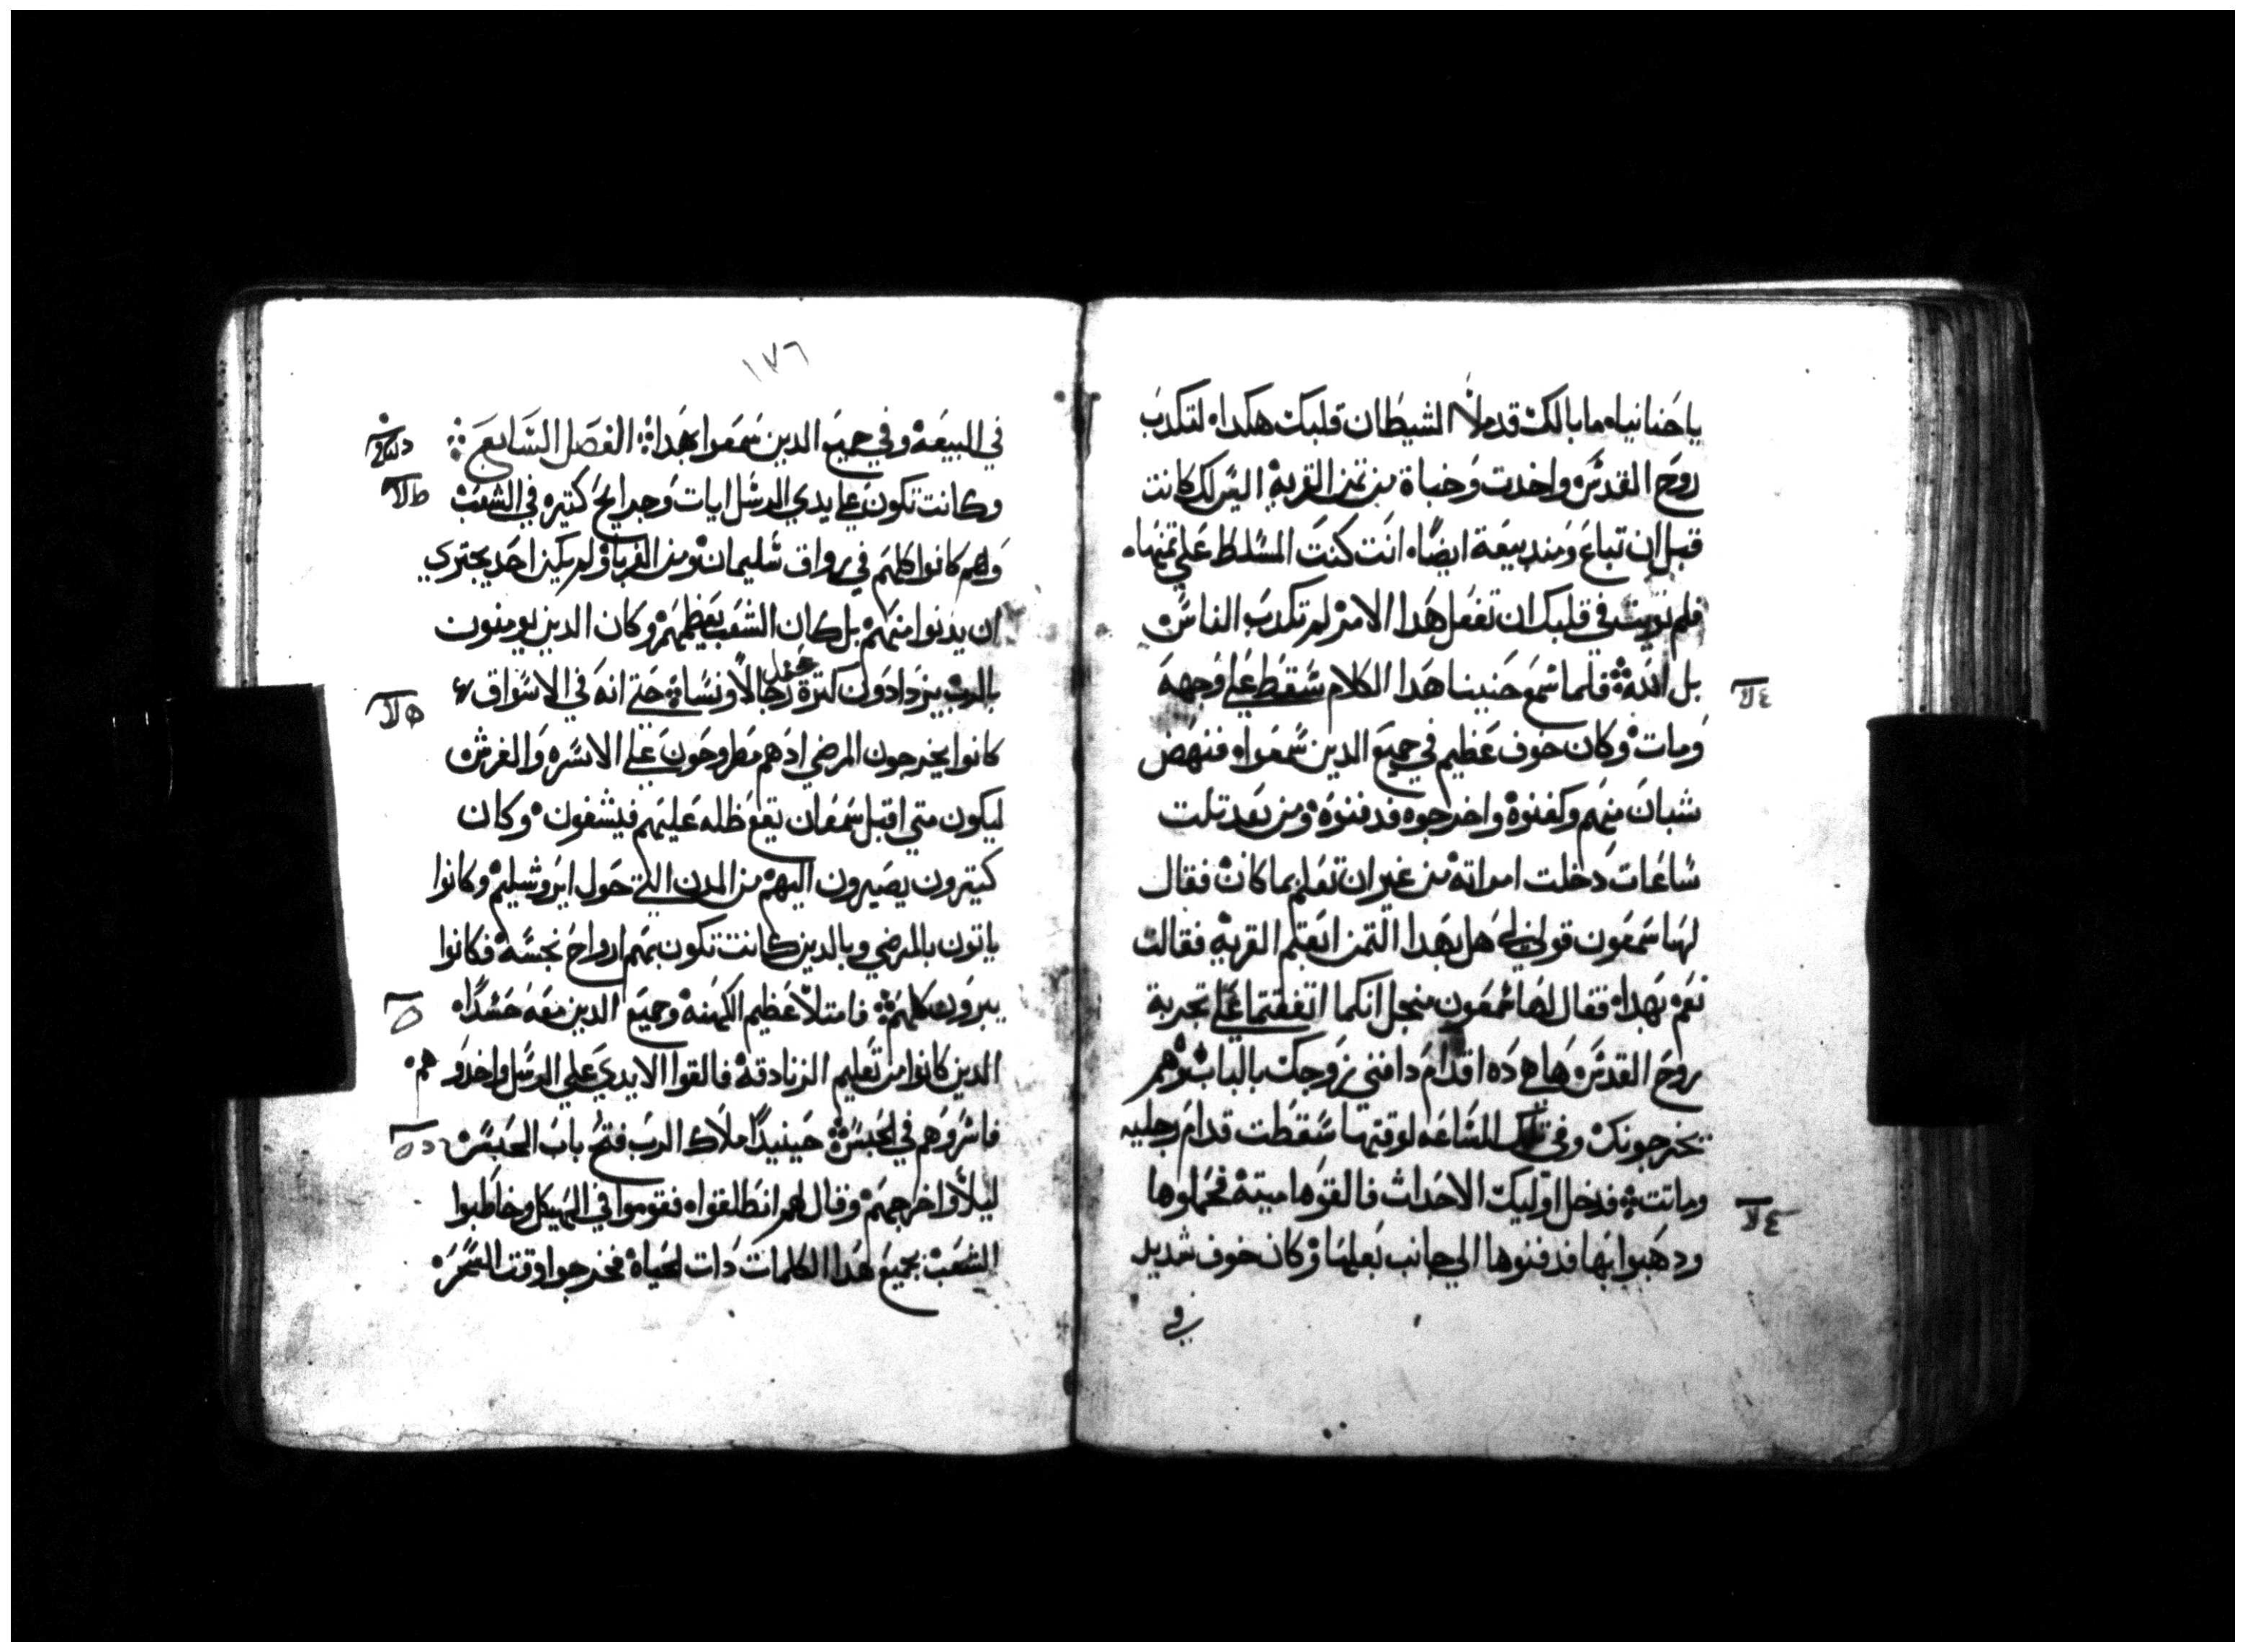 يا حنانياه ما بالك قد ملأ الشيطان قلبك هكداه لتكدب
روح القدس واخدت وخباة من تمن القريه اليس لك كانت
قبل ان تباع ومند بيعة ايضاه انت كنت المسلط علي تمنهاه
فلم نويت في قلبك ان تفعل هدا الامر لم تكدب الناس
بل الله فلما سمع حنينا هدا الكلام سقط علي وجهه
ومات وكان خوف عظيم في جميع الدين سمعواه فنهض
شبان منهم وكفنوه واخرجوه فدفنوه ومن بعد تلت
ساعات دخلت امراته من غير ان تعلم بما كان فقال
لها سمعون قولي لي هل بهدا التمن ابعتم القريه فقالت
نعم بهداه فقال لها سمعون منجل انكما اتفقتما علي تجربة
روح القدس ها هي ده اقدام دافني زوجك بالباب وهم
يخرجونك وفي تلك الساعه لوقتها سقطت قدام رجليه
وماتت فدخل اوليك الاحداث فالقوها ميته فحملوها
ودهبوا بها فدفنوها الي جانب بعلها وكان خوف شديد
في
١٧٦
في البيعه وفي جميع الدين سمعوا بهداه الفصل السابع
وكانت تكون علي يدي الرسل ايات وجرايح كتيره في الشعب
وهم كانوا كلهم في رواق سليمان ومن الغربا ولم يكن احد يجتري
ان يدنوا منهم بل كان الشعب يعظمهم وكان الدين يومنون
بالرب يزدادون كترة رجالا ونساه حتي انه في الاسواق
كانوا يخرجون المرضي ادهم مطروحون علي الاسره والفرش
ليكون متي اقبل سمعان يقع ظله عليهم فيشفون وكان
كتيرون يصيرون اليهم من المدن التي حول ايروشليم وكانوا
ياتون بالمرضي وبالدين كانت تكون بهم ارواح نجسه فكانوا
يبرون كلهم فامتلا عظيم الكهنه وجميع الدين معه حسداه
الدين كانوا من تعليم الزنادقه فالقوا الايدي علي الرسل واخدوهم
فاسروهم في الحبس حينيدا ملاك الرب فتح باب الحبس
ليلا واخرجهم وقال لهم انطلقواه فقوموا في الهيكل وخاطبوا
الشعب بجميع هدا الكلمات دات الحياه فخرجوا وقت السحره